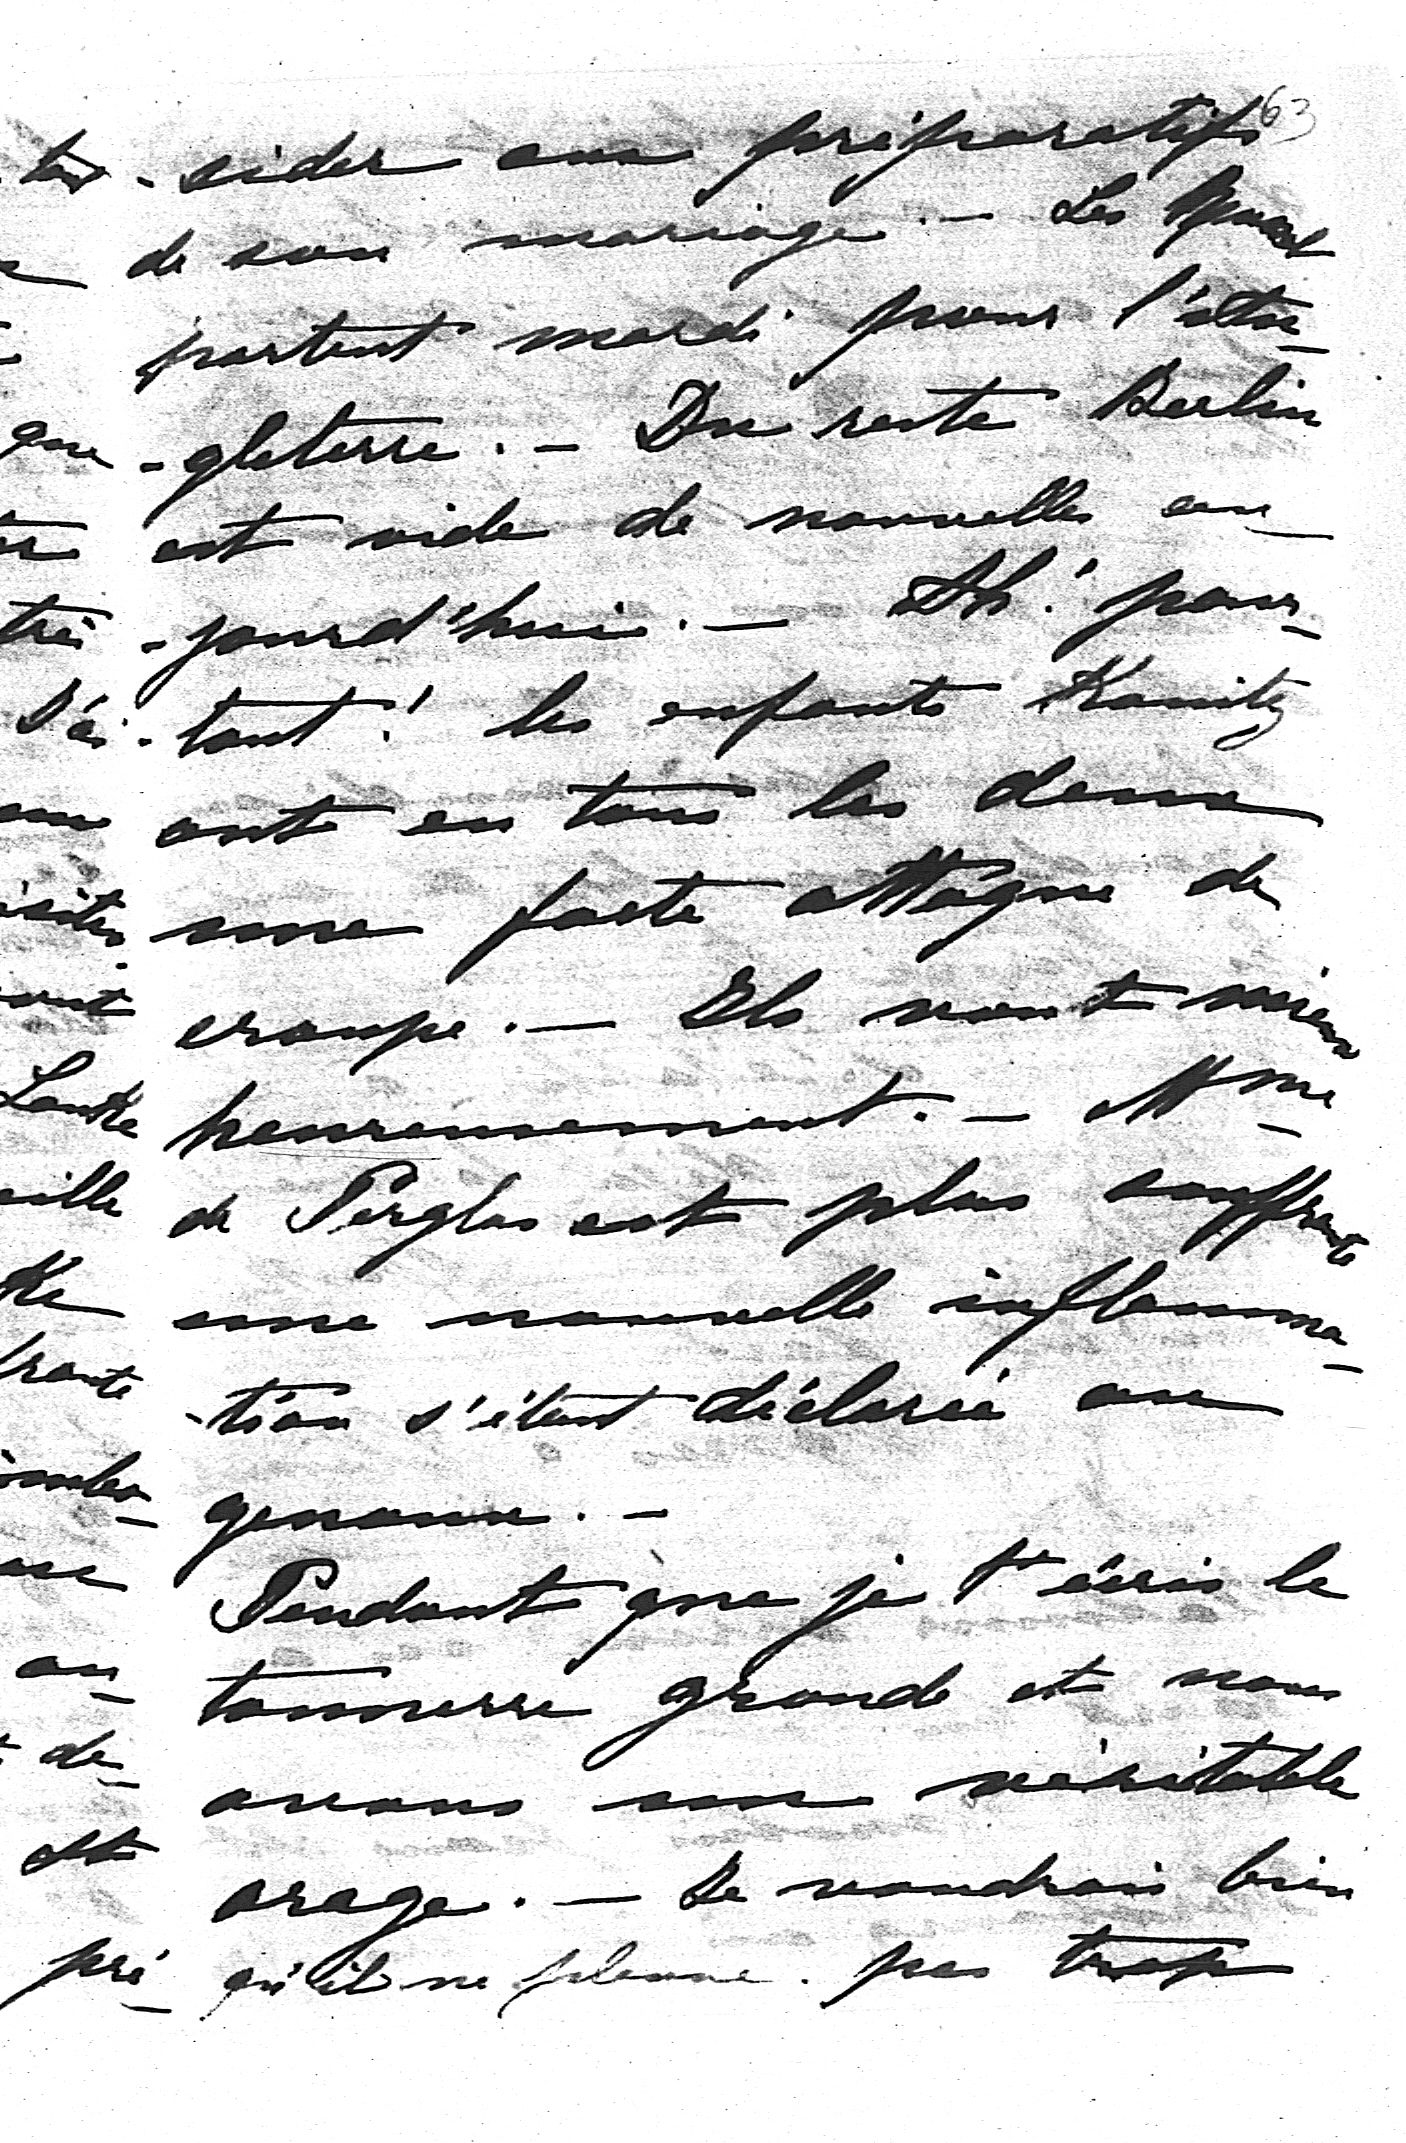 63
-sider aux préparatifs
de son mariage. — Les
partent mardi pour l'An-
-gleterre. — Du reste Berlin
est vide de nouvelles au-
-jourd'hui. — Ah! pour-
-tant! les enfants Kanitz
ont eu tous les deux
une forte attaque de
croupe. — Ils vont mieux
heureusement. — Mme
de Perglas est plus souffrante
une nouvelle inflamma-
-tion s'étant déclarée au
genoux. —
Pendant que je t'écris le
tonnerre gronde et nous
avons un véritable
orage. — Je voudrais bien
qu'il ne pleuve pas trop